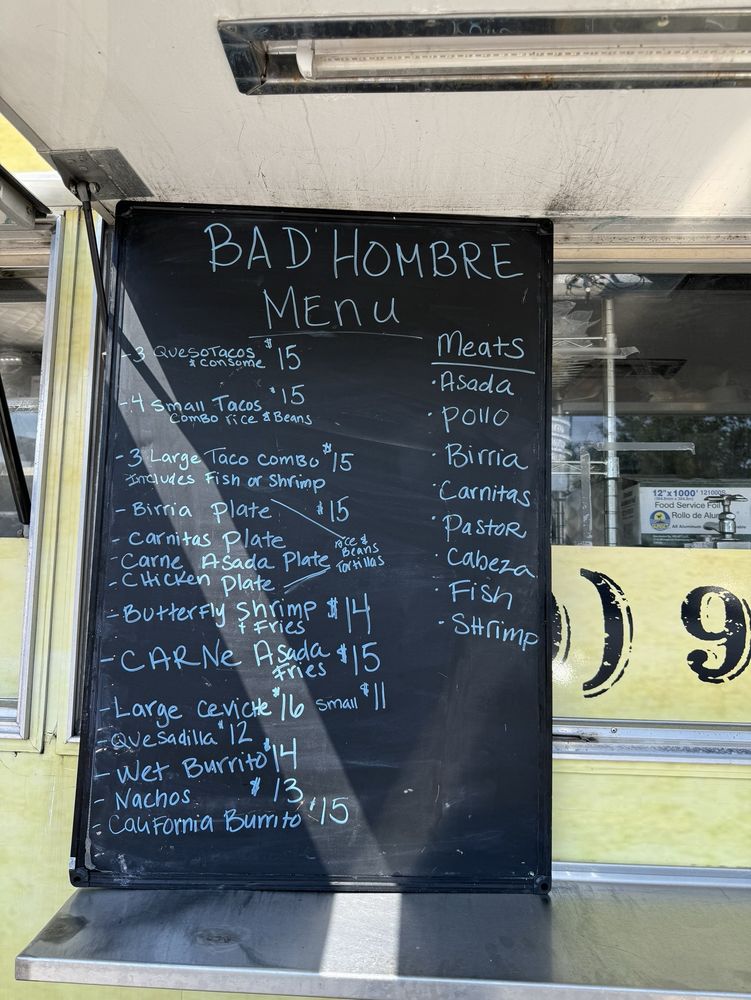 BAD HOMBRE
MENU
- 3 QuesoTacos $15
& consome
- 4 Small Tacos $15
Combo rice & Beans
- 3 Large Taco combo $15
Includes Fish or Shrimp
- Birria Plate $15
- Carnitas Plate
- Carne Asada Plate
- Chicken Plate
rice &
Beans
Tortillas
- Butterfly Shrimp $14
+ Fries
- CARNe Asada $15
Fries
- Large Ceviche $16 Small $11
- Quesadilla $12
- Wet Burrito $14
- Nachos $13
- California Burrito $15
Meats
· Asada
· Pollo
· Birria
· Carnitas
· Pastor
· Cabeza
· Fish
· Shrimp
12"x1000'
Food Service Foil
Rollo de Alum
) 9